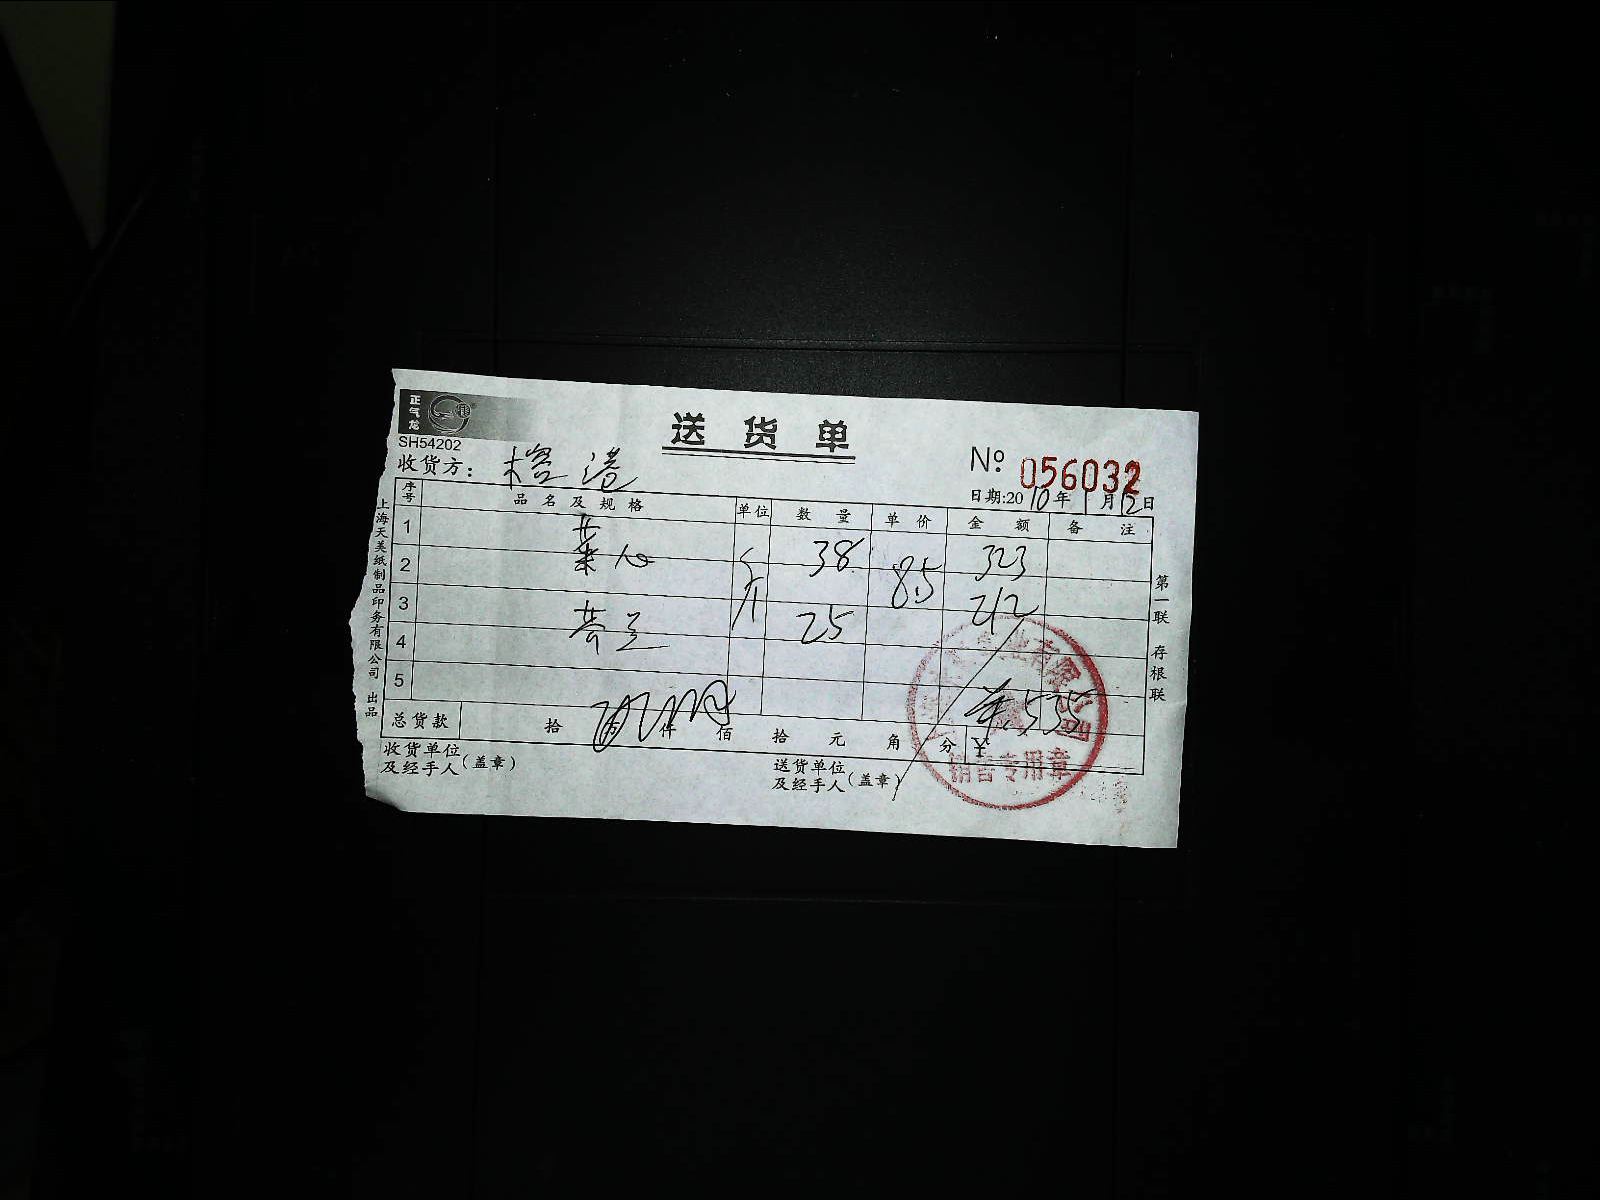 正气龙
送货单
SH54202
№ 056032
收货方： 榕港
日期:2010年1月12日
序号 品名及规格 单位 数量 单价 金额 备注
1
2 菜心 斤 38 8.5 323
3 212
4 芥兰 25
5
¥535
总货款 拾 万 仟 佰 拾 元 角 分 ¥
收货单位及经手人（盖章）
送货单位及经手人（盖章）
销售专用章
上海天美纸制品印务有限公司 出品
第一联 存根联